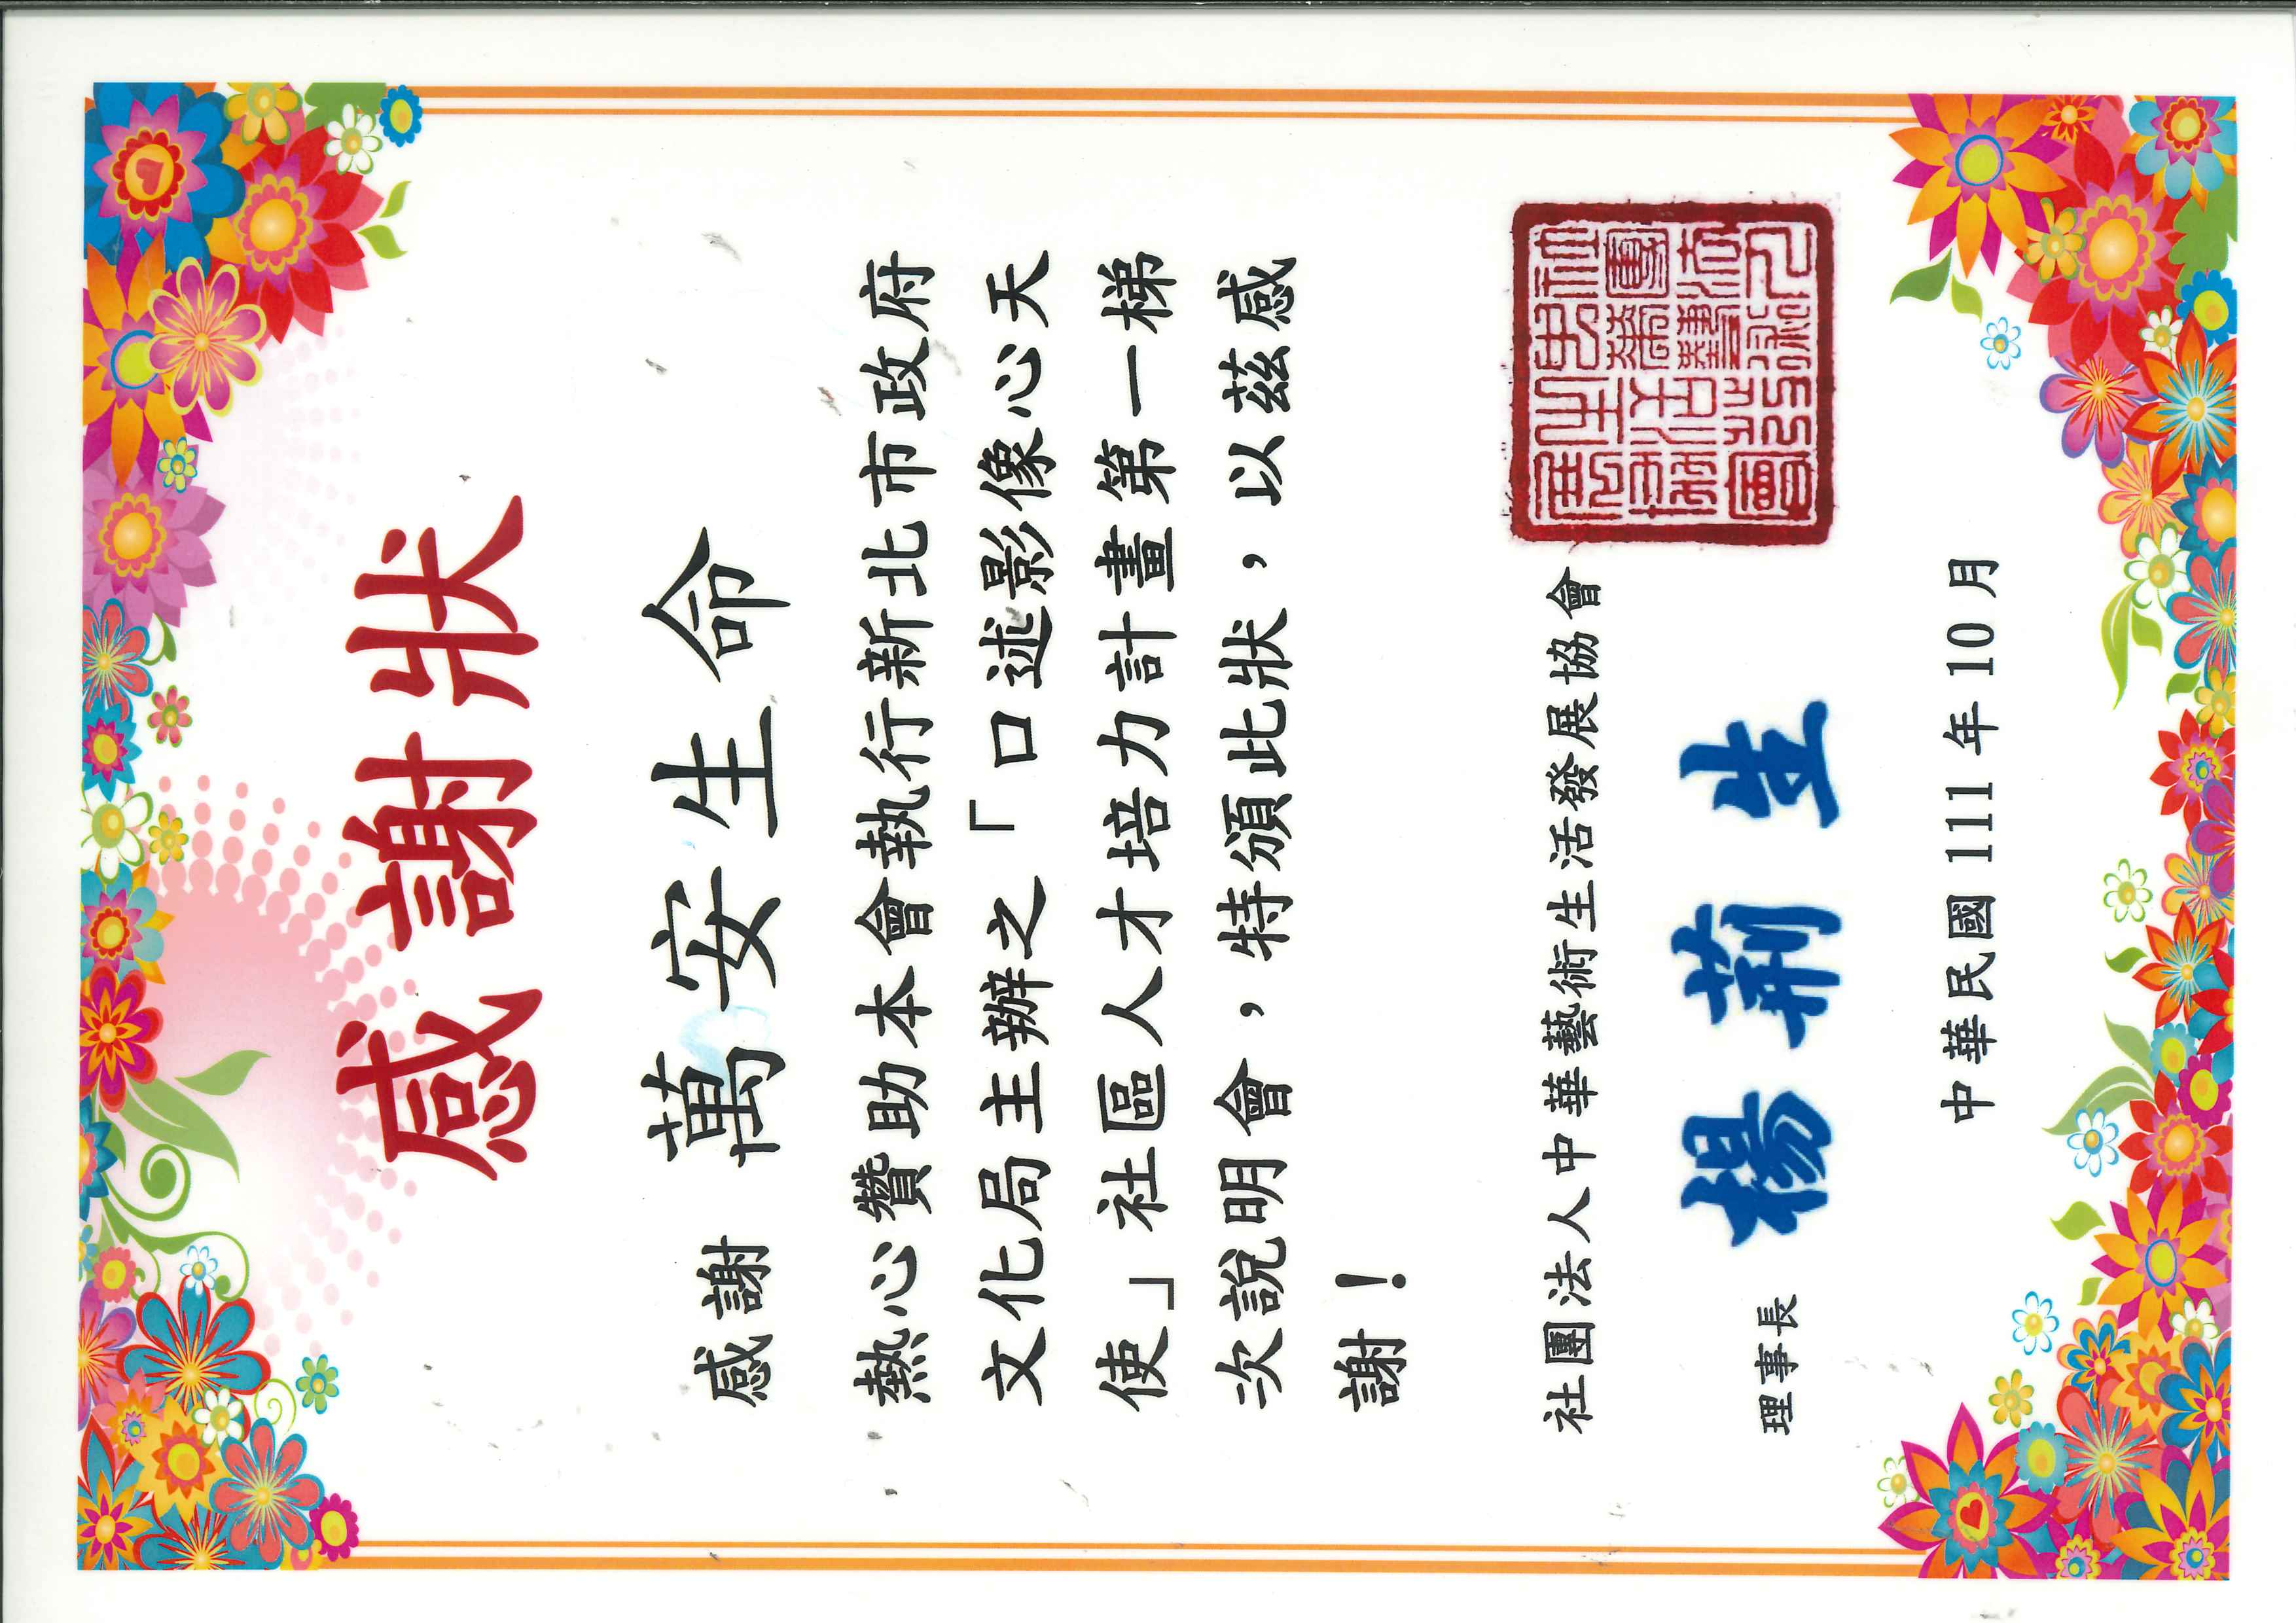 感謝狀
感謝 萬安生命
熱心贊助本會執行新北市政府
文化局主辦之「口述影像心天
使」社區人才培力計畫第一梯
次說明會，特頒此狀，以茲感
謝！
社團法人中華藝術生活發展協會
理事長 楊荊生
中華民國 111 年 10 月